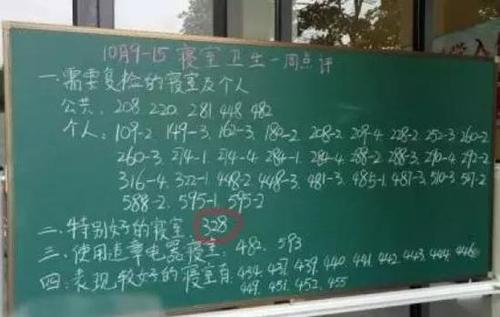 10月9-15 寝室卫生一周点评
一.需要复检的寝室及个人
公共: 208 220. 281 448 482
个人: 109-2. 149-3. 162-3. 180-2. 208-2. 209-4. 228-2. 252-3. 260-2
260-3. 274-1. 274-4. 284-1. 284-4. 288-2. 288-3. 290-4. 292-2
316-4. 322-1. 448-2. 448-3. 481-3. 485-1. 487-3. 510-3. 517-2
588-2. 595-1. 595-2
二.特别好的寝室: 328
三.使用违章电器寝室: 482, 593
四:表现较好的寝室有: 434. 437. 439. 440. 441. 442. 443. 444. 446
449. 451. 452. 455